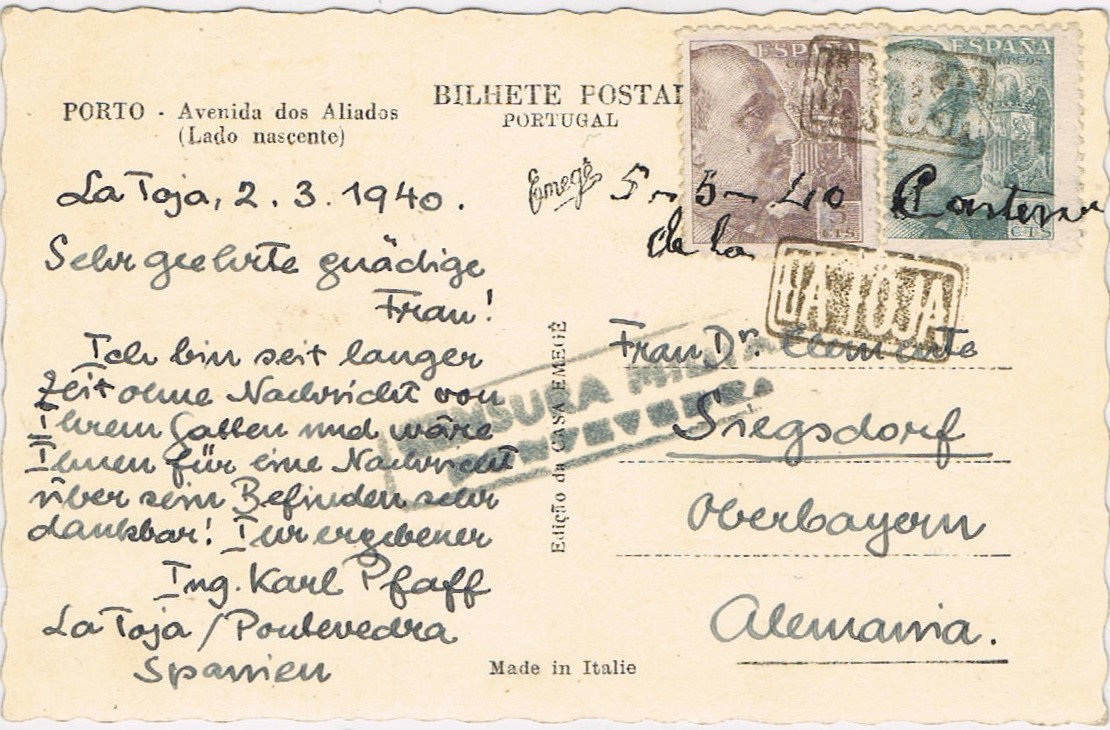 PORTO - Avenida dos Aliados
(Lado nascente)
BILHETE POSTAL
PORTUGAL
ESPAÑA
CORREOS
CTS
ESPAÑA
CORREOS
CTS
LA TOJA
Emegê
5-5-40
de la
LA TOJA
La Toja, 2. 3. 1940.
Sehr geehrte gnädige
Frau!
Ich bin seit langer
Zeit ohne Nachricht von
Ihrem Gatten und wäre
Ihnen für eine Nachricht
über sein Befinden sehr
dankbar! Ihr ergebener
Ing. Karl Pfaff
La Toja / Pontevedra
Spanien
CENSURA MILITAR
PONTEVEDRA
Edição da CASA EMEGÊ
Frau Dr.
Siegsdorf
Oberbayern
Alemania.
Made in Italie